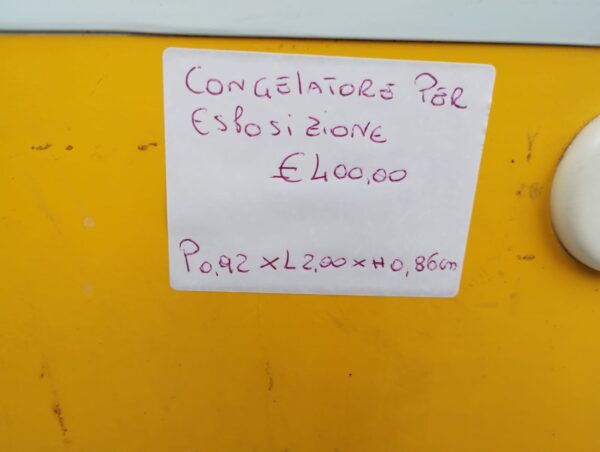 CONGELATORE PER
ESPOSIZIONE
€400,00
P0,92 x L2,00 x H0,86cm